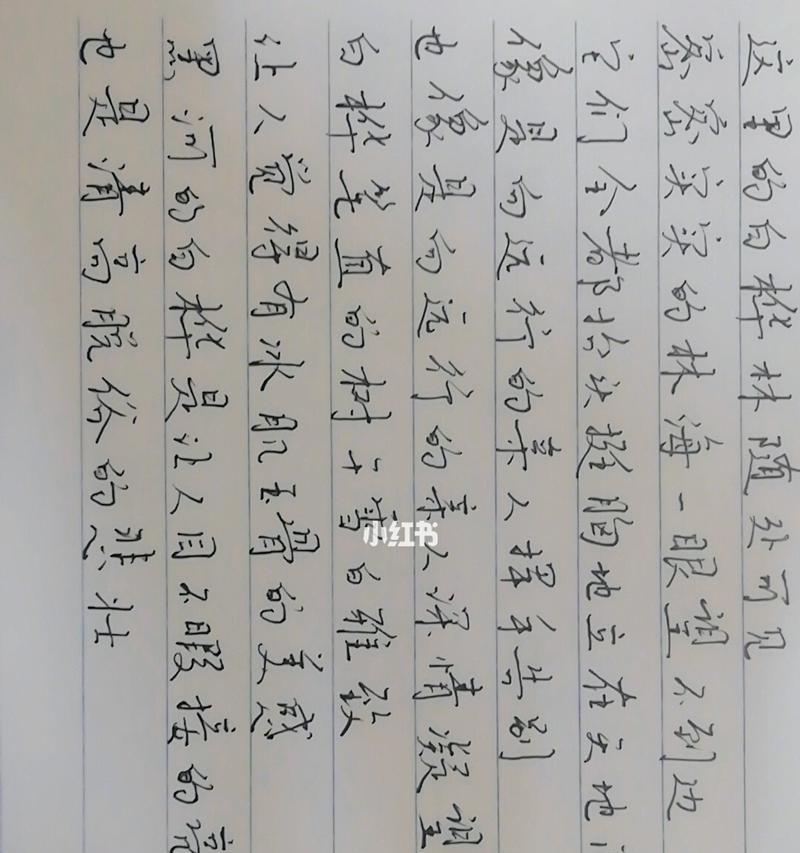 这里的白桦林随处可见
密密实实的林海一眼望不到边
它们全都抬头挺胸地立在天地
像是向远行的亲人挥手告别
也像是向远行的亲人深情凝望
白桦笔直的树干雪白雅致
让人觉得有冰肌玉骨的美感
黑河的白桦是让人目不暇接的亮
也是清高脱俗的悲壮
小红书